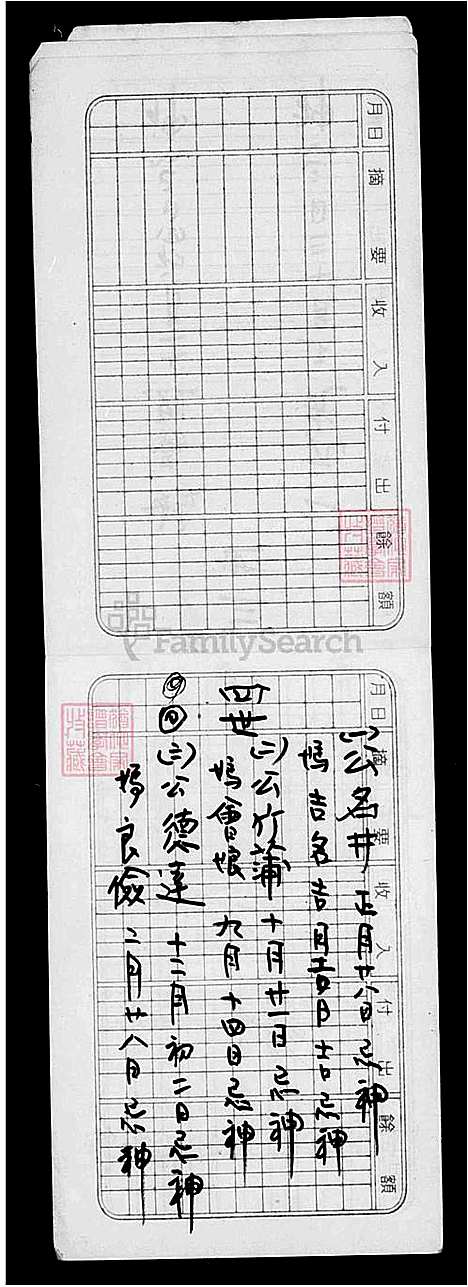 月日 摘要 收入 付出 餘額
FamilySearch
月日 摘要 收入 付出 餘額
(一)公名井 正月廿八日忌神
媽吉名吉月吉日吉忌神
四世
(二)公竹蒲 十月廿一日忌神
媽會娘 九月十四日忌神
(三)公德達 十二月初二日忌神
媽良儉 二月廿八日忌神